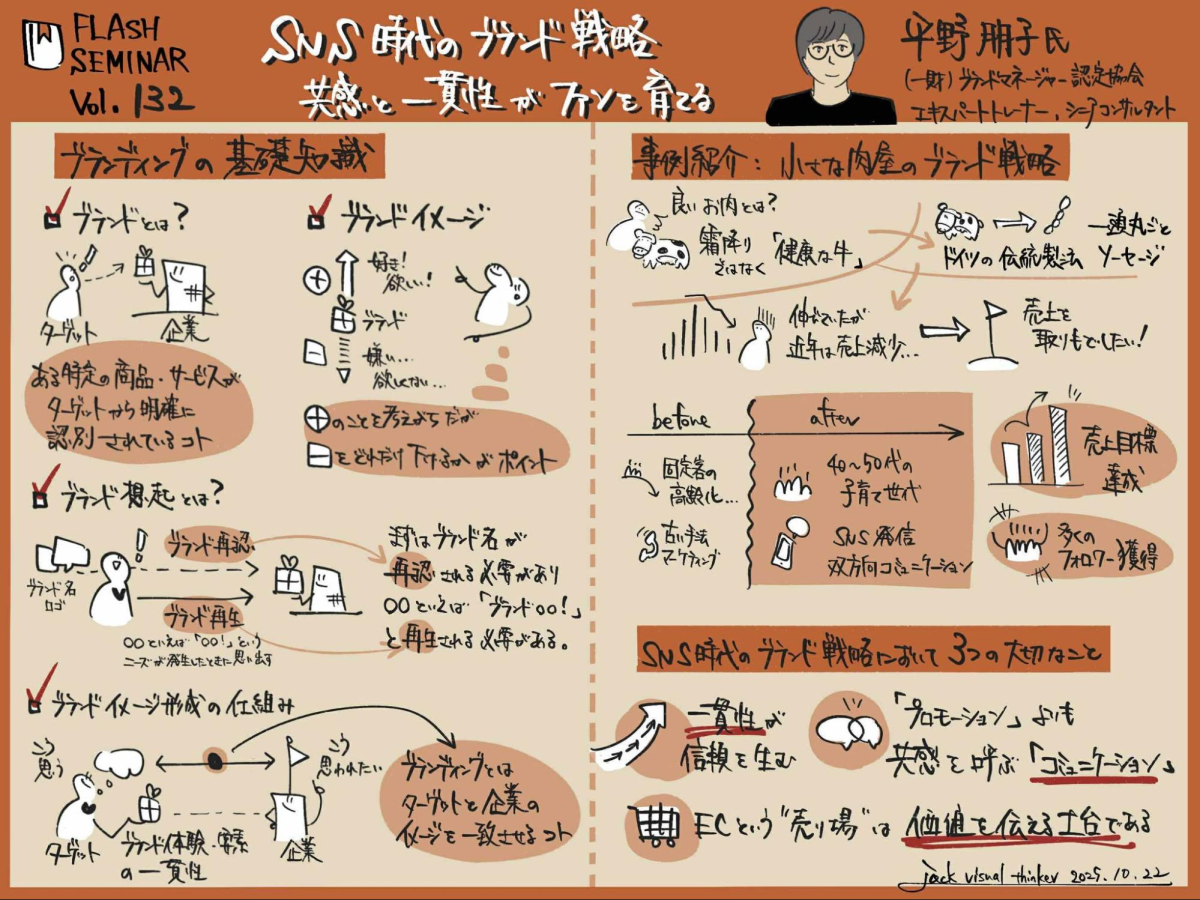 FLASH
SEMINAR
Vol. 132
SNS時代のブランド戦略
共感と一貫性がファンを育てる
平野朋子氏
(一財)ブランドマネージャー認定協会
エキスパートトレーナー、シニアコンサルタント
ブランディングの基礎知識
ブランドとは?
ターゲット
企業
ある特定の商品・サービスが
ターゲットから明確に
認別されているコト
ブランドイメージ
好き!
欲しい!
ブランド
嫌い...
欲しくない...
⊕のことを考えがちだが
⊟をどれだけ下げるかがポイント
ブランド想起とは?
ブランド名
ロゴ
ブランド再認
ブランド再生
〇〇といえば「〇〇!」という
ニーズが発生したときに思い出す
まずはブランド名が
再認される必要があり
〇〇といえば「ブランド〇〇!」
と再生される必要がある。
ブランドイメージ形成の仕組み
こう
思う
こう
思われたい
ターゲット
ブランド体験・要素
の一貫性
企業
ブランディングとは
ターゲットと企業の
イメージを一致させるコト
事例紹介:小さな肉屋のブランド戦略
良いお肉とは?
霜降り
ではなく
「健康な牛」
一頭丸ごと
ドイツの伝統製法
ソーセージ
伸びていたが
近年は売上減少...
売上を
取りもどしたい!
before
after
固定客の
高齢化...
古い手法
マーケティング
40〜50代の
子育て世代
SNS発信
双方向コミュニケーション
売上目標
達成
多くの
フォロワー獲得
SNS時代のブランド戦略において3つの大切なこと
一貫性が
信頼を生む
「プロモーション」よりも
共感を呼ぶ「コミュニケーション」
ECという"売り場"は価値を伝える土台である
jack visual thinker 2025.10.22